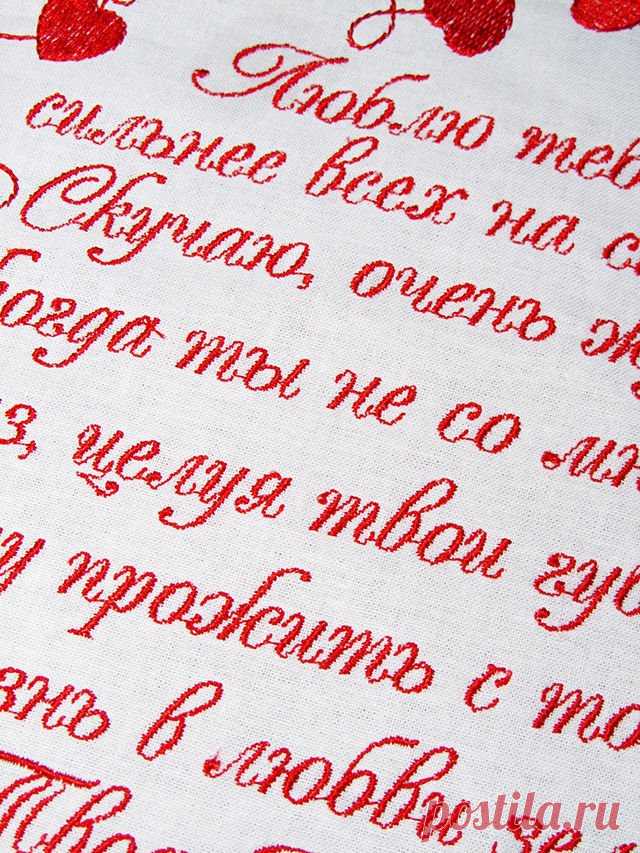 Люблю теб
сильнее всех на с
Скучаю, очень ж
огда ты не со мн
з, целуя твои губ
у прожить с то
знь в любви
Твоя
postila.ru